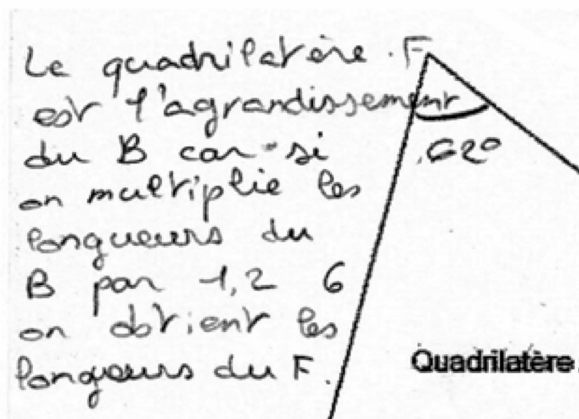 Le quadrilatère F
est l'agrandissement
du B car si
on multiplie les
longueurs du
B par 1,2 6
on obtient les
longueurs du F.
62°
Quadrilatère